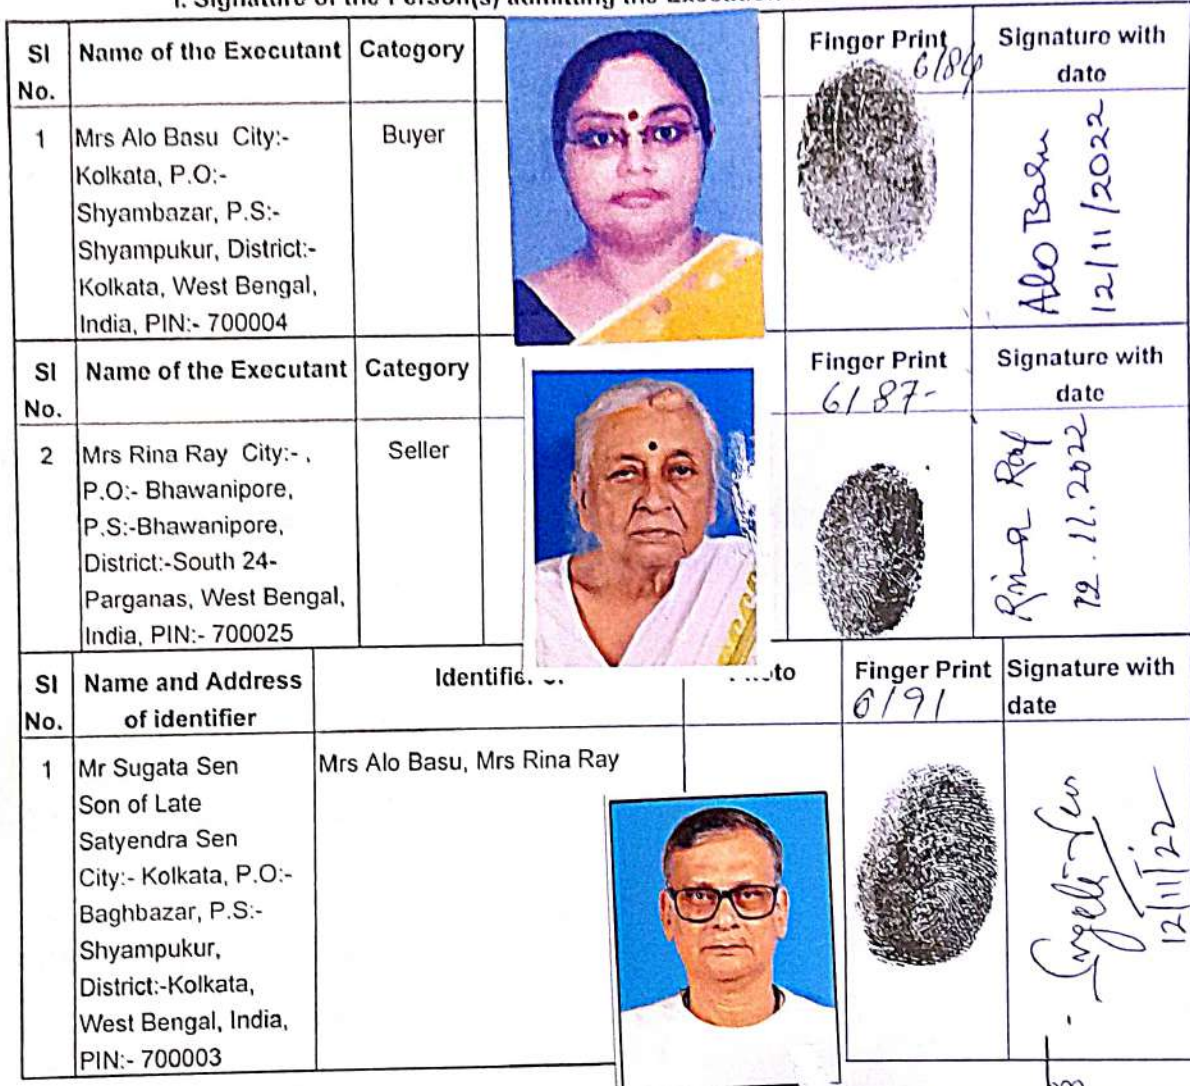 I. Signature of the Person(s) admitting the Execution
Sl No. Name of the Executant Category Finger Print Signature with date
6186
1 Mrs Alo Basu City:- Buyer
Kolkata, P.O:-
Shyambazar, P.S:-
Shyampukur, District:-
Kolkata, West Bengal,
India, PIN:- 700004
Alo Basu
12/11/2022
Sl No. Name of the Executant Category Finger Print Signature with date
6187-
2 Mrs Rina Ray City:- , Seller
P.O:- Bhawanipore,
P.S:-Bhawanipore,
District:-South 24-
Parganas, West Bengal,
India, PIN:- 700025
Rina Ray
12.11.2022
Sl No. Name and Address of identifier Finger Print Signature with date
6191
1 Mr Sugata Sen Mrs Alo Basu, Mrs Rina Ray
Son of Late
Satyendra Sen
City:- Kolkata, P.O:-
Baghbazar, P.S:-
Shyampukur,
District:-Kolkata,
West Bengal, India,
PIN:- 700003
Sugata Sen
12/11/22